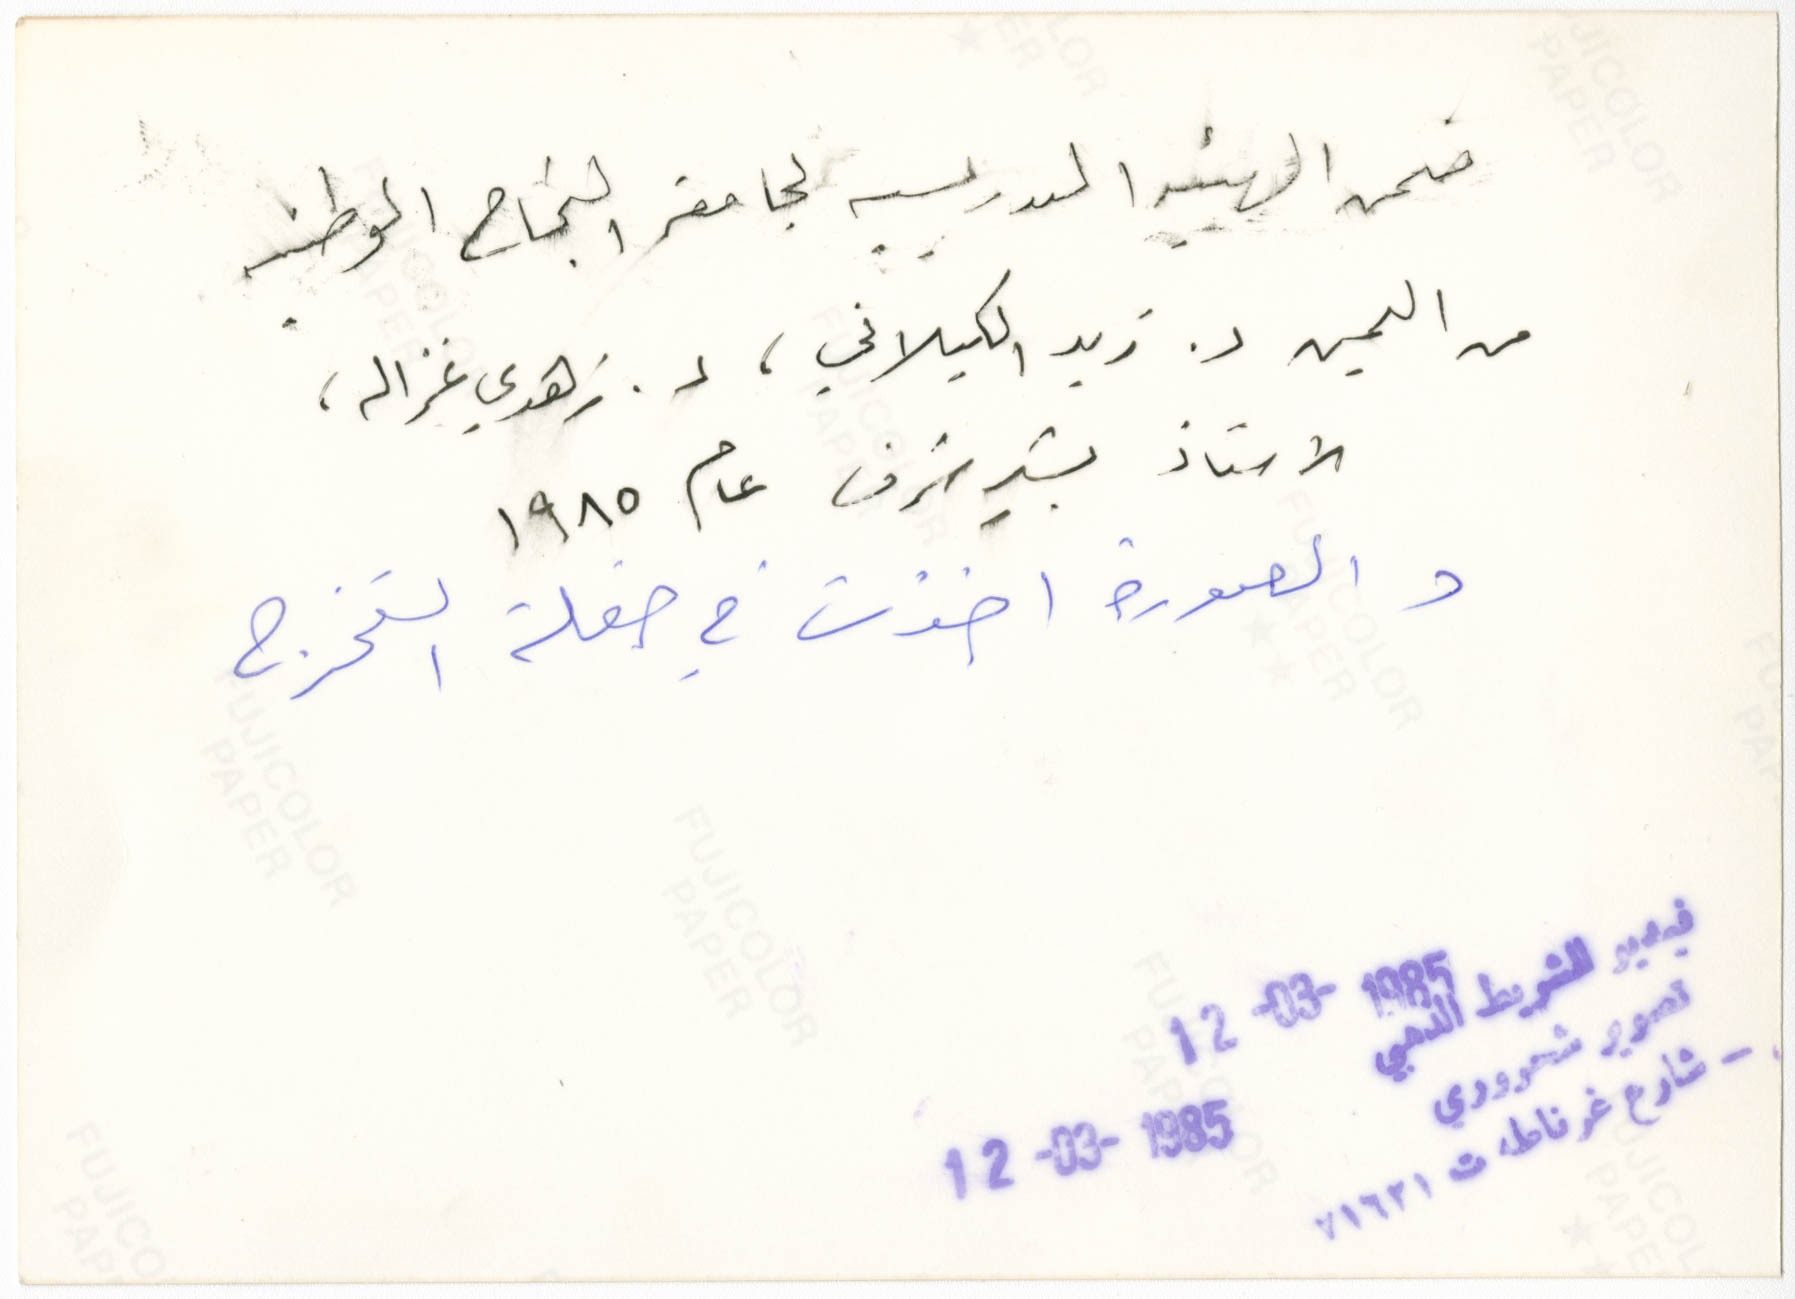 ضمن الهيئه التدريسيه لجامعة النجاح الوطنيه
من اليمين د. زيد الكيلاني ، د. زهدي غزاله ،
الاستاذ بشير شرف عام ١٩٨٥
و الصورة اخذت في حفلة التخرج
فيديو الشريط الذهبي
12 -03- 1985
تصوير شحروري
- شارع غرناطه ت ٧١٦٢١
12 -03- 1985
FUJICOLOR
PAPER